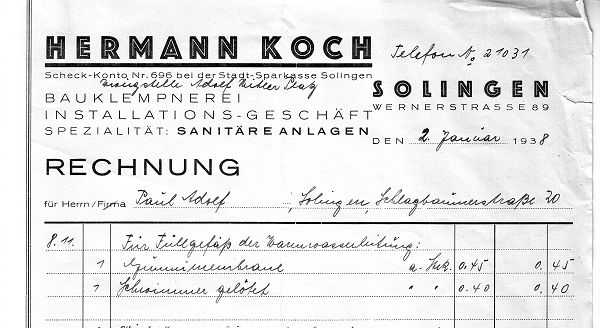 HERMANN KOCH Telefon No 21031
Scheck-Konto Nr. 696 bei der Stadt-Sparkasse Solingen
Zweigstelle Adolf Hitler Platz
SOLINGEN
BAUKLEMPNEREI
WERNERSTRASSE 89
INSTALLATIONS-GESCHÄFT
SPEZIALITÄT: SANITÄRE ANLAGEN
DEN 2. Januar 1938
RECHNUNG
für Herrn/Firma Paul Adolf, Solingen, Schlagbaumerstraße 20
8.11. Für Füllgefäß der Warmwasserleitung:
1 Gummimembrane a. Stck. 0.45 0.45
1 Schwimmer gelötet " " 0.40 0.40